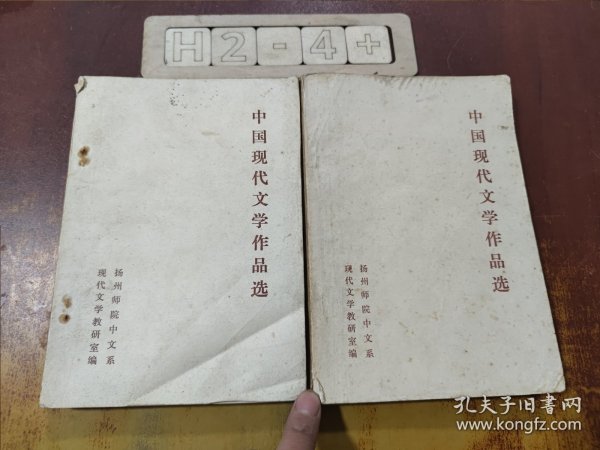 H2-4+
中国现代文学作品选
扬州师院中文系
现代文学教研室编
中国现代文学作品选
扬州师院中文系
现代文学教研室编
孔夫子旧书网
www.kongfz.com